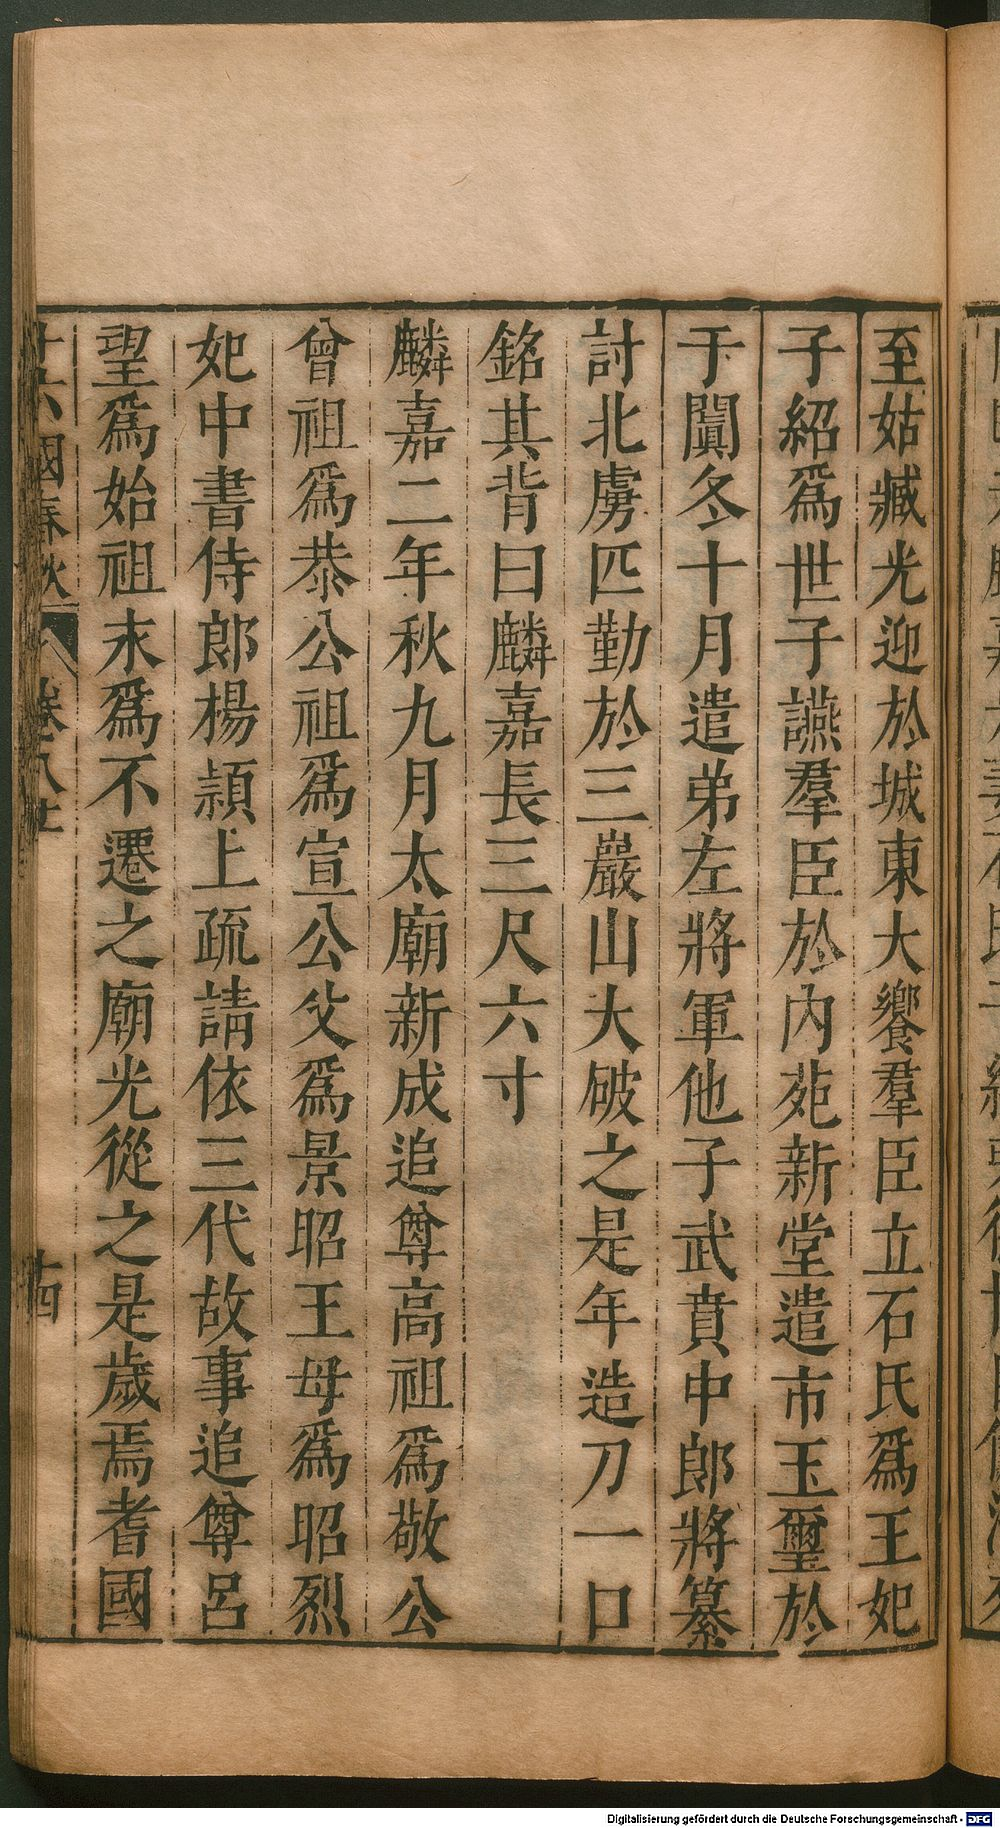 至姑臧光迎於城東大饗羣臣立石氏爲王妃
子紹爲世子讌羣臣於內苑新堂遣市玉璽於
于闐冬十月遣弟左將軍他子武賁中郎將纂
討北虜匹勤於三巖山大破之是年造刀一口
銘其背曰麟嘉長三尺六寸
麟嘉二年秋九月太廟新成追尊高祖爲敬公
曾祖爲恭公祖爲宣公父爲景昭王母爲昭烈
妃中書侍郎楊頴上疏請依三代故事追尊呂
望爲始祖永爲不遷之廟光從之是歲焉耆國
十六國春秋
卷八十
十四
Digitalisierung gefördert durch die Deutsche Forschungsgemeinschaft - DFG